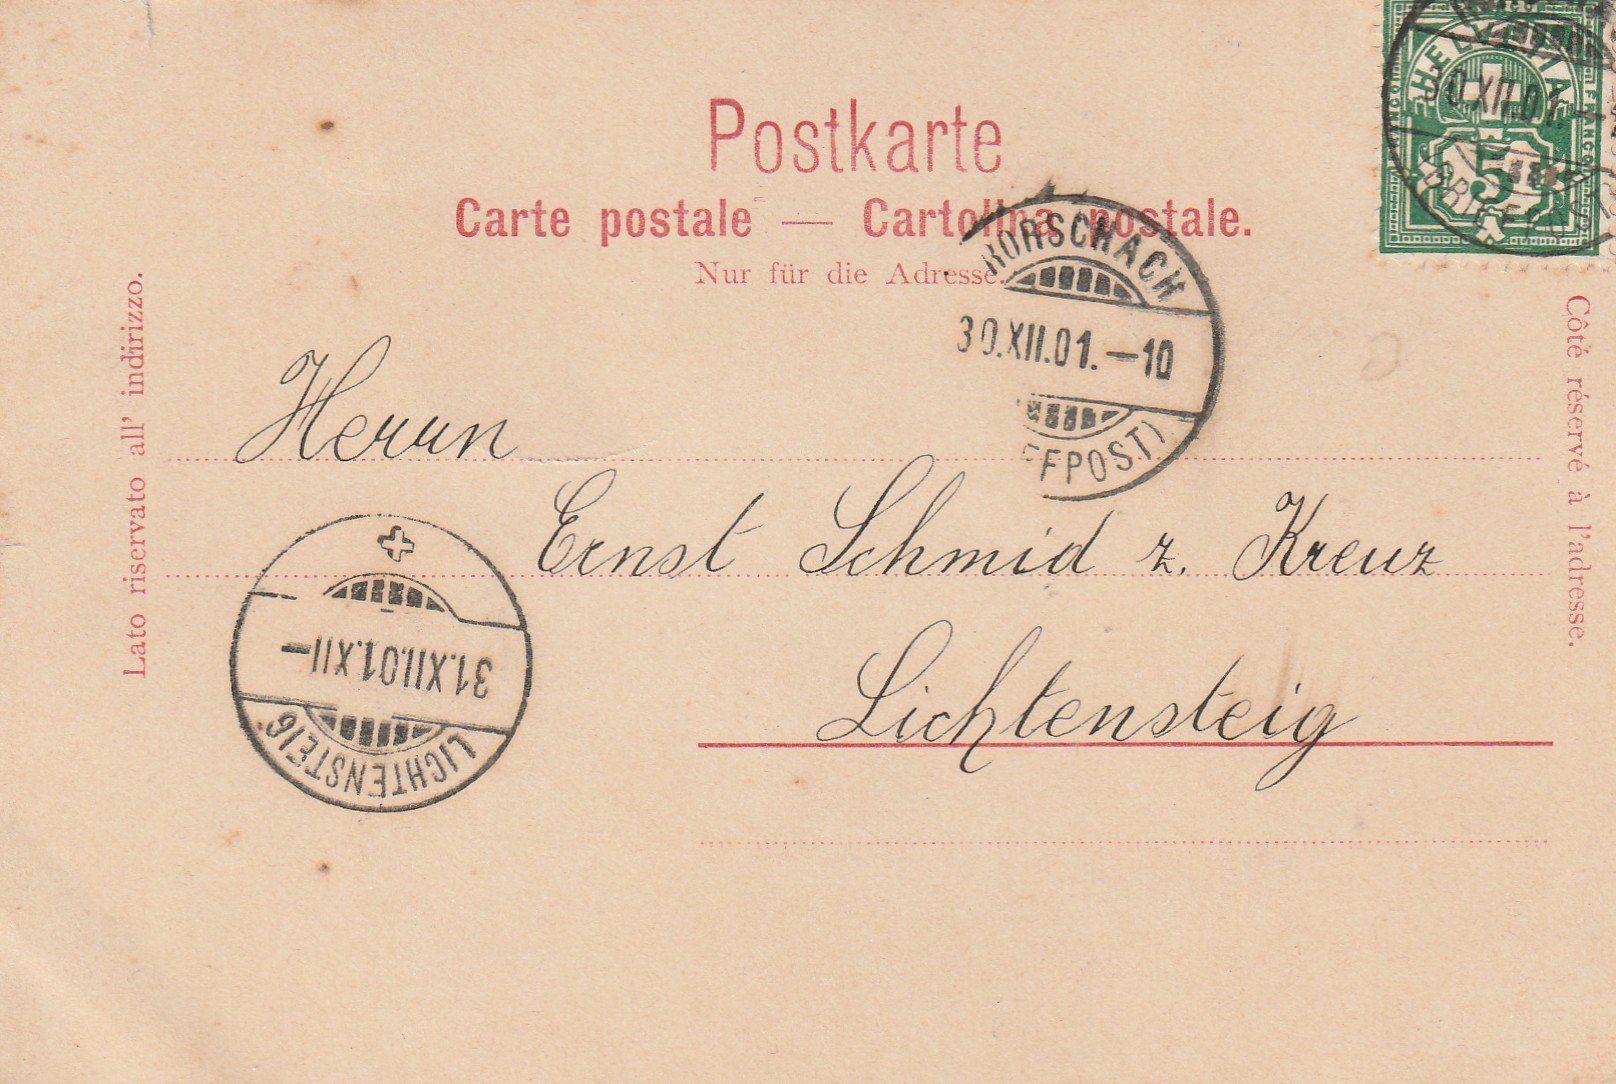 Postkarte
Carte postale — Cartolina postale.
Nur für die Adresse.
HELVETIA
FRANCO
5
30.XII.01.
RORSCHACH
30.XII.01.—10
FPOST)
Lato riservato all' indirizzo.
Côté réservé à l'adresse.
Herrn
Ernst Schmid z. Kreuz
Lichtensteig
31.XII.01.XII—
LICHTENSTEIG